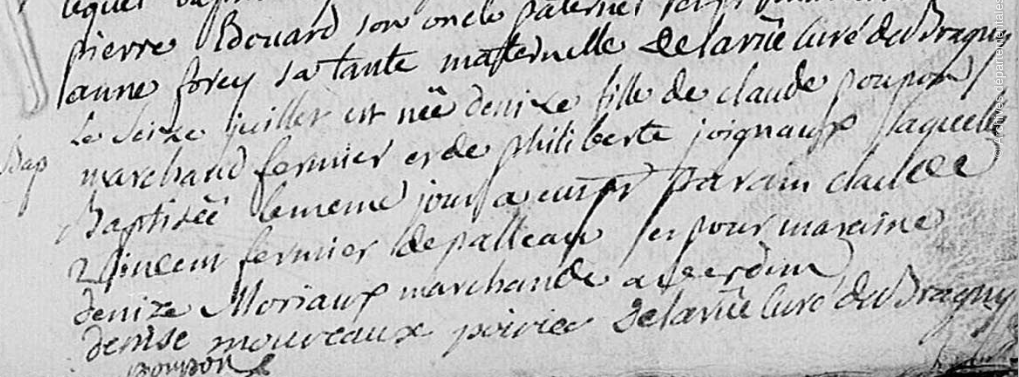 pierre Edouard son oncle paternel
anne forey sa tante maternelle Delarüe Curé du Bragny
Bap
Le seize juillet est née denize fille de claude poupon
marchand fermier et de philiberte joignaux laquelle
Baptisée le meme jour a eu pr parain claude
Vincent fermier de palleau et pour maraine
denize Moriaux marchande a verdun
denise moureaux poirier Delarüe Curé du Bragny
poupon